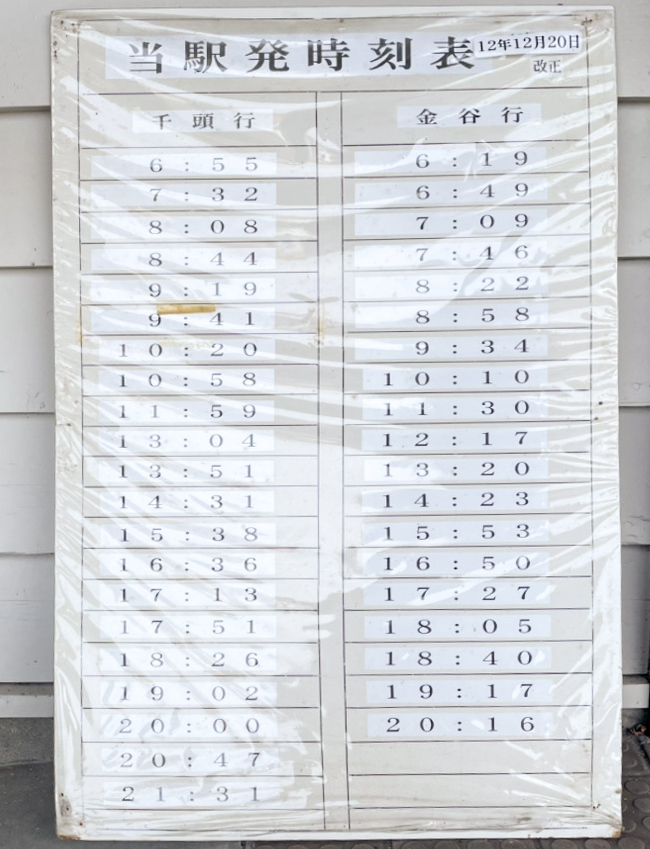 当駅発時刻表 12年12月20日
改正
千頭行 金谷行
6:55 6:19
7:32 6:49
8:08 7:09
8:44 7:46
9:19 8:22
9:41 8:58
10:20 9:34
10:58 10:10
11:59 11:30
13:04 12:17
13:51 13:20
14:31 14:23
15:38 15:53
16:36 16:50
17:13 17:27
17:51 18:05
18:26 18:40
19:02 19:17
20:00 20:16
20:47
21:31